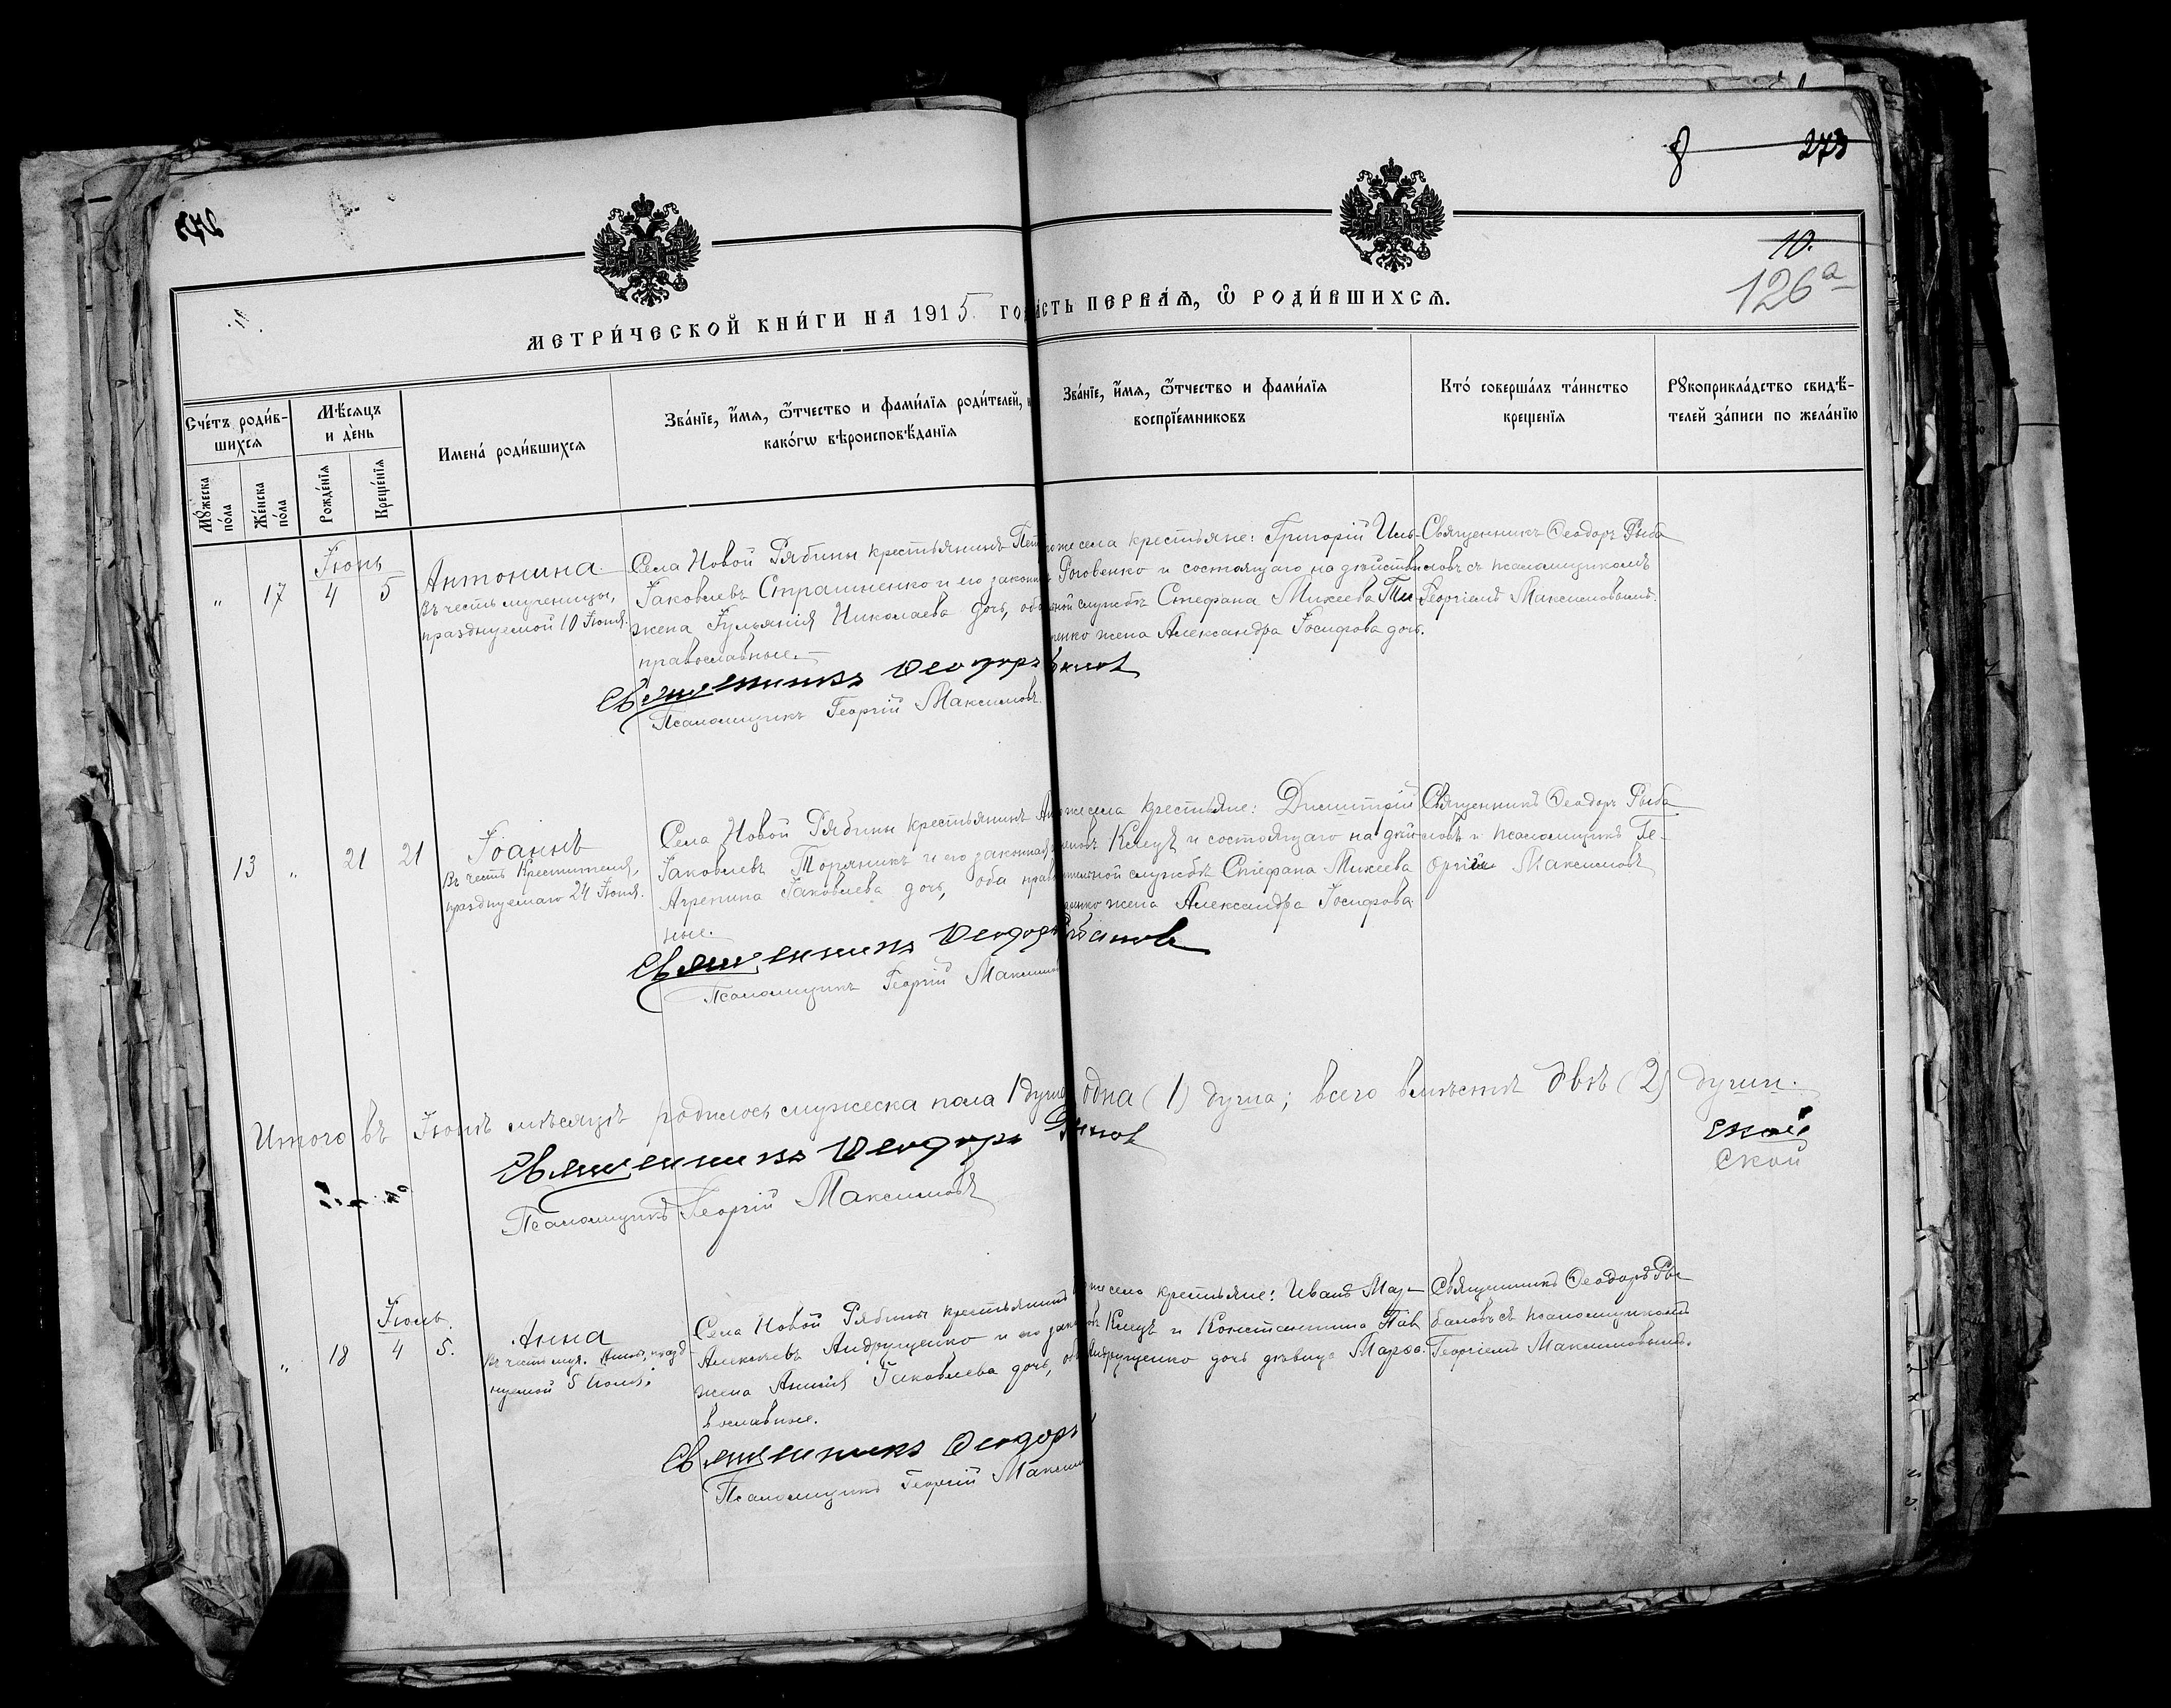 272
8 273
10.
126а
МЕТРИ́ЧЕСКОЙ КНИ́ГИ НА 1915 ГО
А́СТЬ ПЕРВА́Ѧ, Ѿ РОДИ́ВШИХСѦ.
Сче́тъ роди́в-
шихсѧ
Мѹ́жеска по́ла
Же́нска по́ла
Мѣ́сѧцъ и де́нь
Рожде́нїѧ
Креще́нїѧ
Имена́ роди́вшихсѧ
Зва́нїе, и́мѧ, ѻ́тчество и фами́лїѧ роди́телей, и
како́гѡ вѣроисповѣ́данїѧ
Зва́нїе, и́мѧ, ѻ́тчество и фами́лїѧ
воспрїе́мниковъ
Кто́ соверша́лъ та́инство
креще́нїѧ
Рѹкоприкла́дство свидѣ́-
телей за́писи по жела́нїю
Іюнь
" 17 4 5
Антонина
Въ честь мученицы,
празднуемой 10 Іюня.
Села Новой Рябины крестьянинъ Пет
Іаковлевъ Страшненко и его законн
жена Іульянія Николаева дочь, оба
православные.
Священникъ Ѳеодоръ
Псаломщикъ Георгій Максимовъ.
же села крестьяне: Григорій Иль-
Роговенко и состоящаго на дѣйстви
ной службѣ Стефана Михеева Ти
енко жена Александра Іосифова дочь.
Священникъ Ѳеодоръ Рыба
новъ съ псаломщикомъ
Георгіемъ Максимовымъ.
13 " 21 21
Іоаннъ
Въ честь Крестителя,
празднуемаго 24 Іюня.
Села Новой Рябины крестьянинъ
Іаковлевъ Торяникъ и его законная
Агрепина Іаковлева дочь, оба право
ные.
Священникъ Ѳеодоръ Рыбановъ
Псаломщикъ Георгій Максимо
же села крестьяне: Димитрій
Клецъ и состоящаго на дѣй-
ной службѣ Стефана Михеева
енко жена Александра Іосифова
Священникъ Ѳеодоръ Рыба
новъ и псаломщикъ Ге-
оргій Максимовъ
Итого въ Іюнѣ мѣсяцѣ родилось мужеска пола 1 душа одна (1) душа; всего вмѣстѣ двѣ (2) души.
Священникъ Ѳеодоръ
Псаломщикъ Георгій Максимовъ
ской
Іюль
" 18 4 5.
Анна
Въ честь муч. Анны, празд
нуемой 5 Іюля.
Села Новой Рябины крестьянинъ
Алексѣевъ Андрущенко и его зак
жена Іаковлева дочь,
вославные.
Священникъ Ѳеодоръ
Псаломщикъ Георгій Максим
же села крестьяне: Иванъ
Клецъ и Константина Пав
Андрущенко дочь дѣвица Марѳа.
Священникъ Ѳеодоръ Ры
бановъ съ псаломщикомъ
Георгіемъ Максимовымъ.